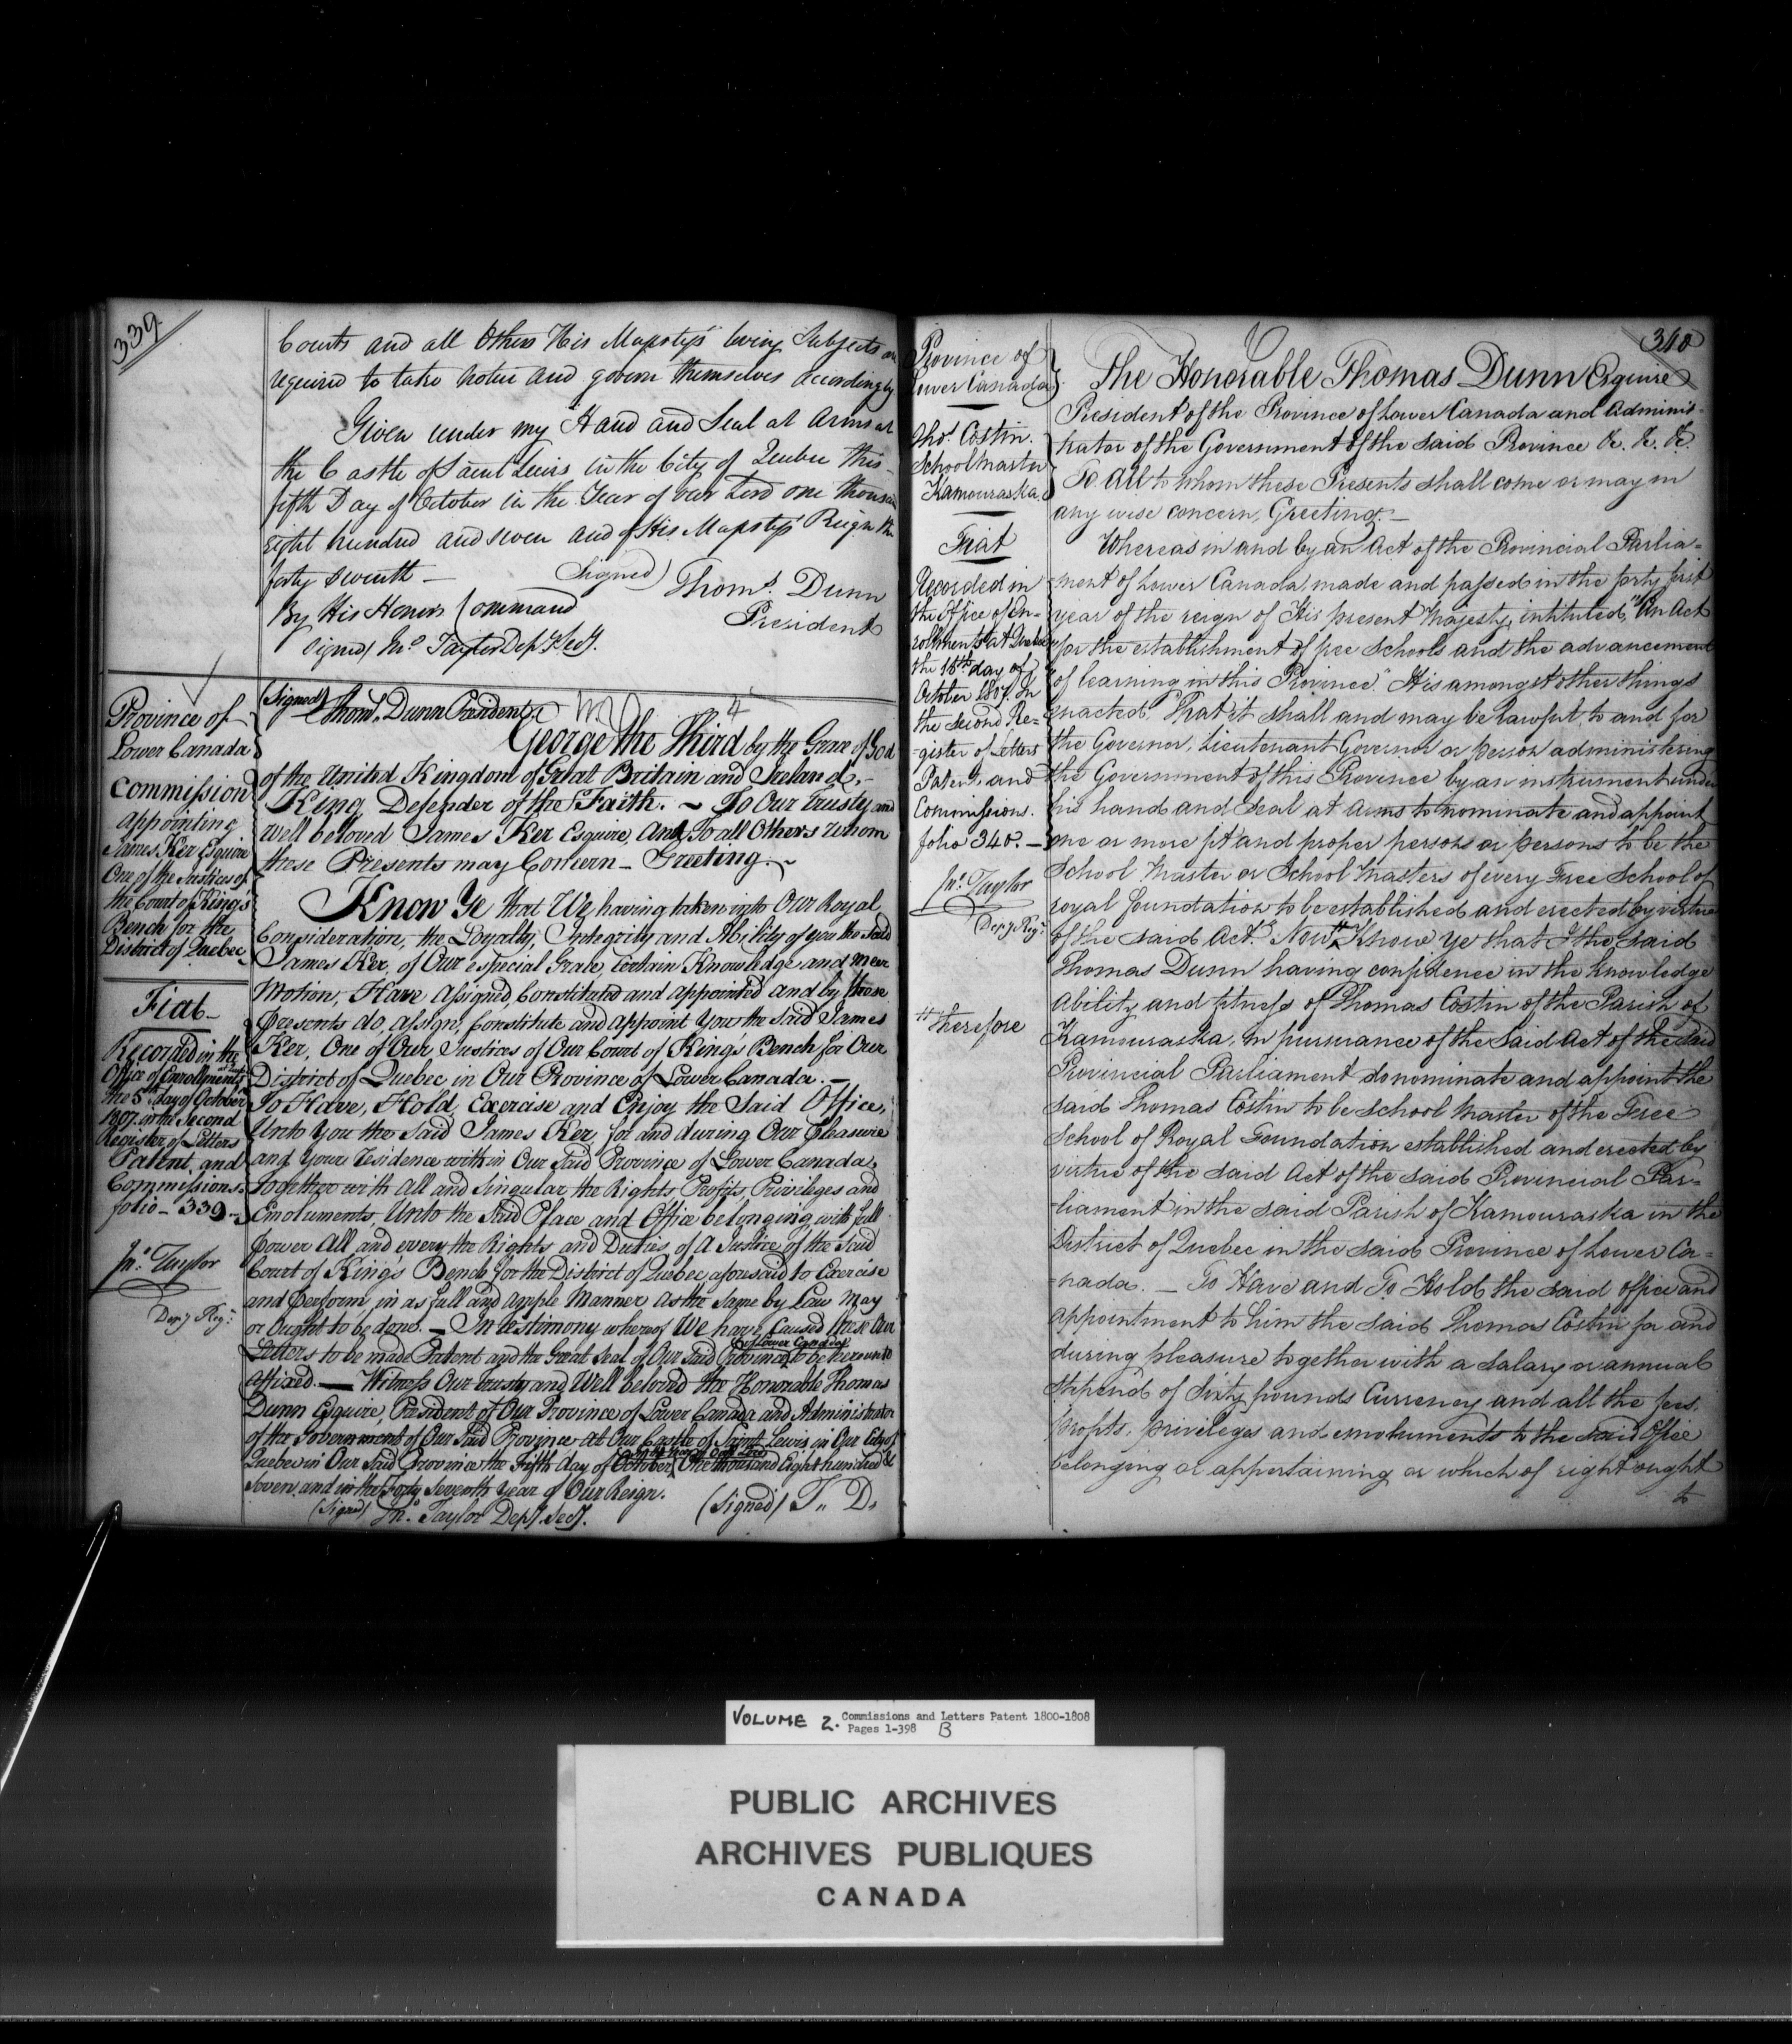 339.
Courts and all Others His Majesty's loving Subjects are
required to take notice and govern themselves accordingly
Given under my Hand and Seal at Arms at
the Castle of Saint Lewis in the City of Quebec this
fifth Day of October in the Year of our Lord one thousand
eight hundred and seven and of His Majesty's Reign the
forty seventh —
(Signed) Thoms. Dunn
President
By His Honors Command
Signed) Jno. Taylor Depy Secy.
Province of
Lower Canada
Commission
appointing
James Ker Esquire
One of the Justices of
the Court of King's
Bench for the
District of Quebec
Fiat
Recorded in the
Office of Enrollments
the 5th day of October
1807. in the Second
Register of Letters
Patent, and
Commissions.
folio — 339 —
Jno. Taylor
Depy Regr.
(Signed) Thoms. Dunn President
George the Third by the Grace of God
of the United Kingdom of Great Britain and Ireland,
King Defender of the Faith. — To Our trusty and
well beloved James Ker Esquire, And To all Others whom
these Presents may Concern — Greeting. —
Know Ye that We having taken into Our Royal
Consideration, the Loyalty, Integrity and Ability of you the Said
James Ker, of Our especial Grace, Certain Knowledge and Meer
Motion, Have Assigned, Constituted and appointed and by these
Presents do, assign, Constitute and appoint You the Said James
Ker, One of Our Justices of Our Court of King's Bench for Our
District of Quebec in Our Province of Lower Canada. —
To Have, Hold, Exercise and Enjoy the Said Office,
Unto You the Said James Ker, for and during Our Pleasure
and Your residence within Our Said Province of Lower Canada,
Together with all and Singular the Rights, Profits, Privileges and
Emoluments, Unto the Said Place and Office belonging, with full
Power All and every the Rights and Duties of A Justice of the Said
Court of King's Bench for the District of Quebec aforesaid to Exercise
and Perform in as full and Ample Manner as the Same by Law May
or Ought to be done. — In testimony whereof We have Caused these Our
Letters to be made Patent and the Great Seal of Our Said Province of Lower Canada to be hereunto
affixed. — Witness Our trusty and Well beloved the Honorable Thomas
Dunn Esquire, President of Our Province of Lower Canada and Administrator
of the Government of Our Said Province at Our Castle of Saint Lewis in Our City of
Quebec in Our Said Province the Fifth day of October in the Year of Our Lord One thousand Eight hundred &
Seven, and in the Forty Seventh Year of Our Reign.
(Signed) T.. D.
(Signed) Jno. Taylor Depy Secy.
340
Province of
Lower Canada
Thos. Costin.
School Master
Kamouraska.
Fiat
Recorded in
the Office of En-
rollments at Quebec
the 16th day of
October 1807. In
the Second Re-
gister of Letters
Patent, and
Commissions.
folio 340. —
Jno. Taylor
Depy Regr.
# therefore
The Honorable Thomas Dunn Esquire
President of the Province of Lower Canada and Adminis-
trator of the Government of the said Province &c. &c. &c.
To All to whom these Presents shall come or may in
any wise concern, Greeting. —
Whereas in and by an Act of the Provincial Parlia-
ment of Lower Canada made and passed in the forty first
year of the reign of His present Majesty, intituled, "An Act
"for the establishment of free Schools and the advancement
"of learning in this Province." It is amongst other things
enacted, "That it shall and may be lawful, to and for
the Governor, Lieutenant Governor or person administering
the Government of this Province by an instrument under
his hand and Seal at Arms to nominate and appoint
one or more fit and proper person or persons to be the
School Master or School Masters of every Free School of
royal foundation to be established and erected by virtue
of the said Act." Now # Know ye that I the said
Thomas Dunn having confidence in the knowledge
ability and fitness of Thomas Costin of the Parish of
Kamouraska, in pursuance of the said Act of the said
Provincial Parliament do nominate and appoint the
said Thomas Costin to be School Master of the Free
School of Royal Foundation established and erected by
virtue of the said Act of the said Provincial Par-
-liament in the said Parish of Kamouraska in the
District of Quebec in the said Province of Lower Ca-
-nada. — To Have and To Hold the said office and
appointment to him the said Thomas Costin for and
during pleasure together with a salary or annual
stipend of Sixty pounds Currency and all the fees,
profits, privileges and emoluments to the said Office
belonging or appertaining or which of right ought
to
VOLUME 2. Commissions and Letters Patent 1800-1808
Pages 1-398 B
PUBLIC ARCHIVES
ARCHIVES PUBLIQUES
CANADA